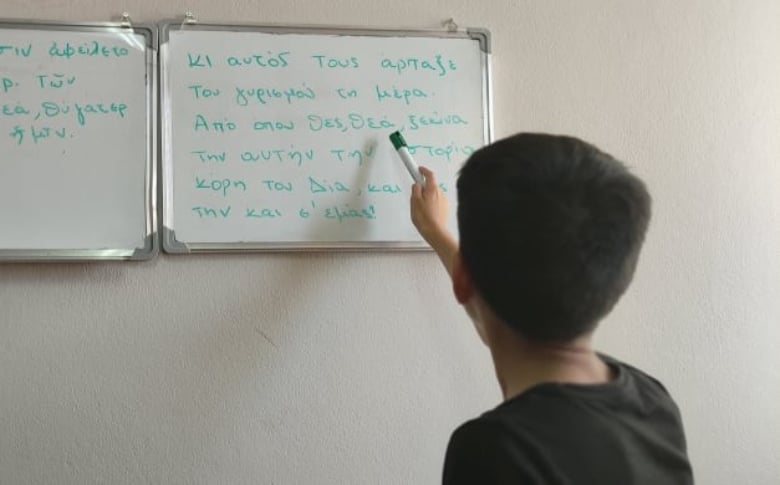 σιν ἀφείλετο
ρ. Τῶν
εά, θύγατερ
ἡμῖν.
κι αυτός τους άρπαξε
του γυρισμού τη μέρα.
Από οπου θες, θεά, ξεκίνα
την αυτήν την στορία
κόρη του Δία, και ς
την και σ' εμάς!